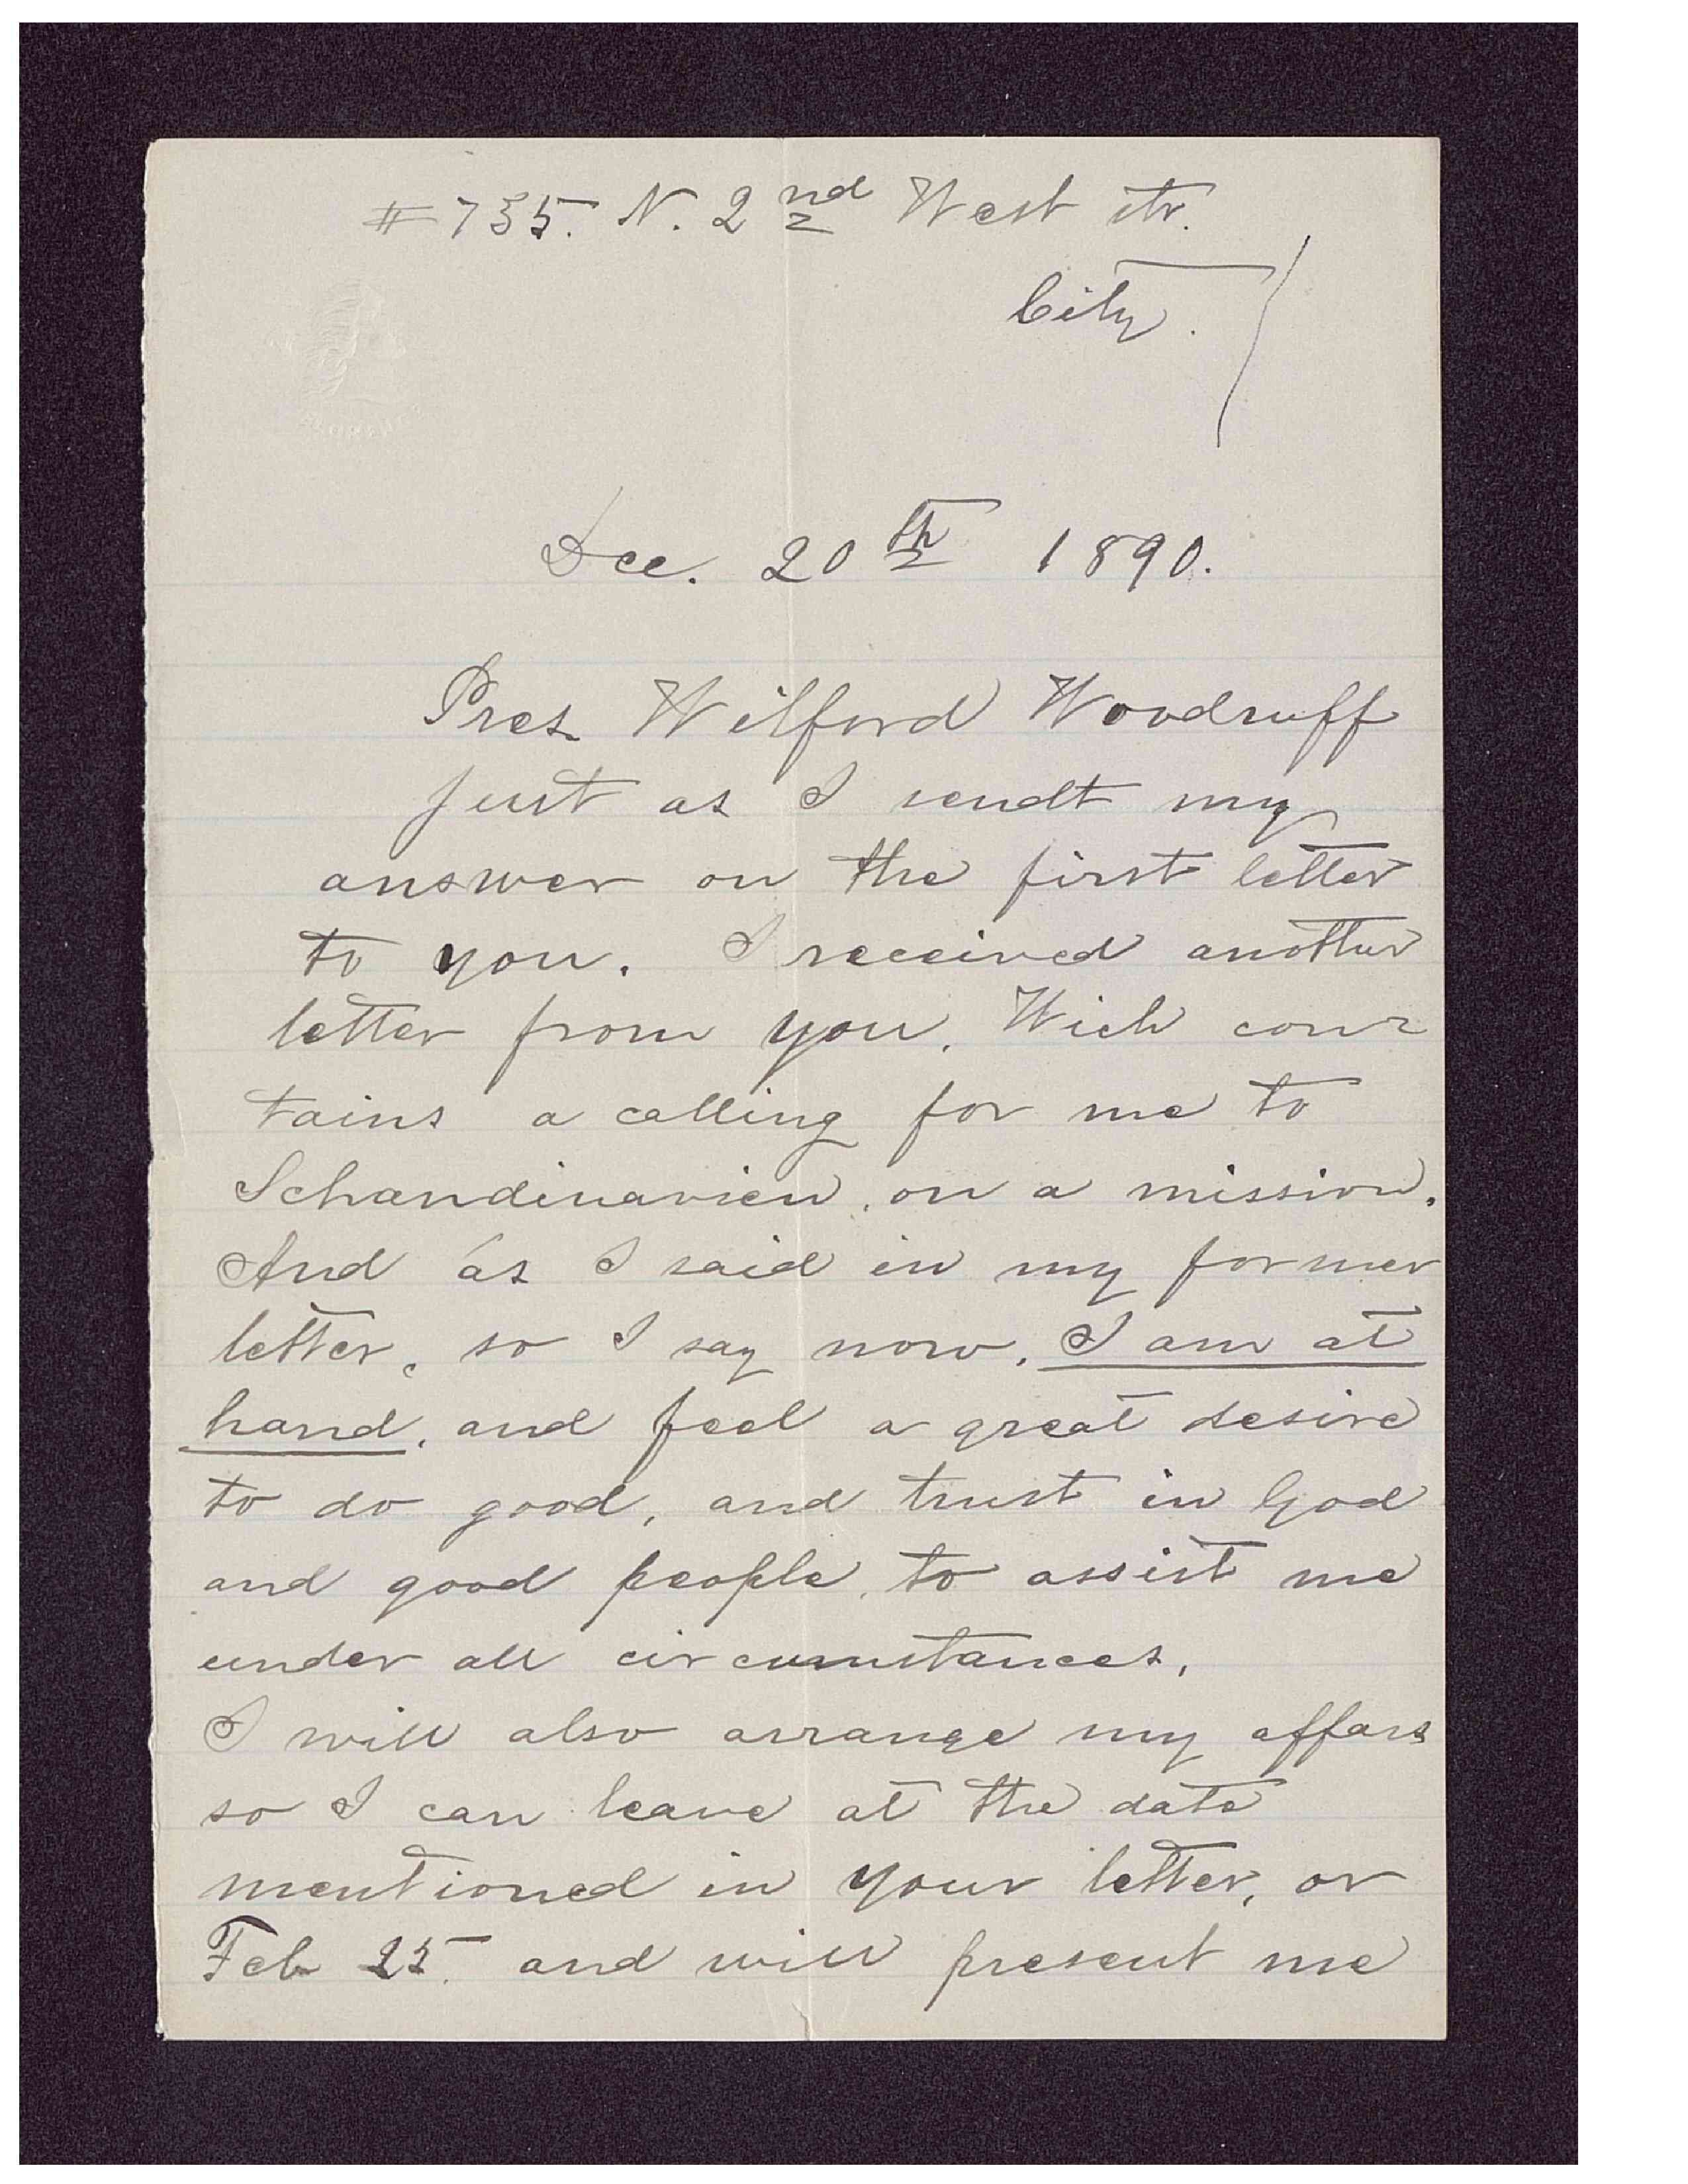 # 735. N. 2nd West str.
City.
Dec. 20th 1890.
Pres. Wilford Woodruff
Just as I sendt my
answer on the first letter
to you. I received another
letter from you. Wich con-
tains a calling for me to
Schandinavien, on a mission.
And as I said in my former
letter, so I say now, I am at
hand, and feel a great desire
to do good, and trust in God
and good people, to assist me
under all circumstances,
I will also arrange my affars
so I can leave at the date
mentioned in your letter, or
Feb 25. and will present me